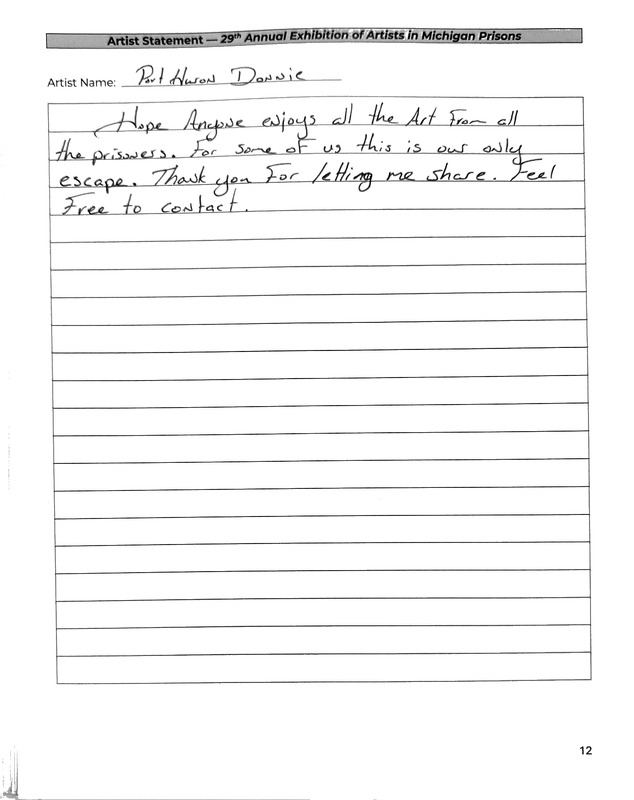 Artist Statement — 29th Annual Exhibition of Artists in Michigan Prisons
Artist Name: Port Huron Donnie
Hope Anyone enjoys all the Art From all
the prisoners. For some of us this is our only
escape. Thank you For letting me share. Feel
Free to contact.
12